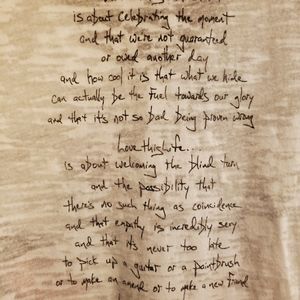 is about celebrating the moment
and that we're not guaranteed
or owed another day
and how cool it is that what we hide
can actually be the fuel towards our glory
and that it's not so bad being proven wrong
Love this Life...
is about welcoming the blind turn
and the possibility that
there's no such thing as coincidence
and that empathy is incredibly sexy
and that it's never too late
to pick up a guitar or a paintbrush
or to make an amend or to make a new friend